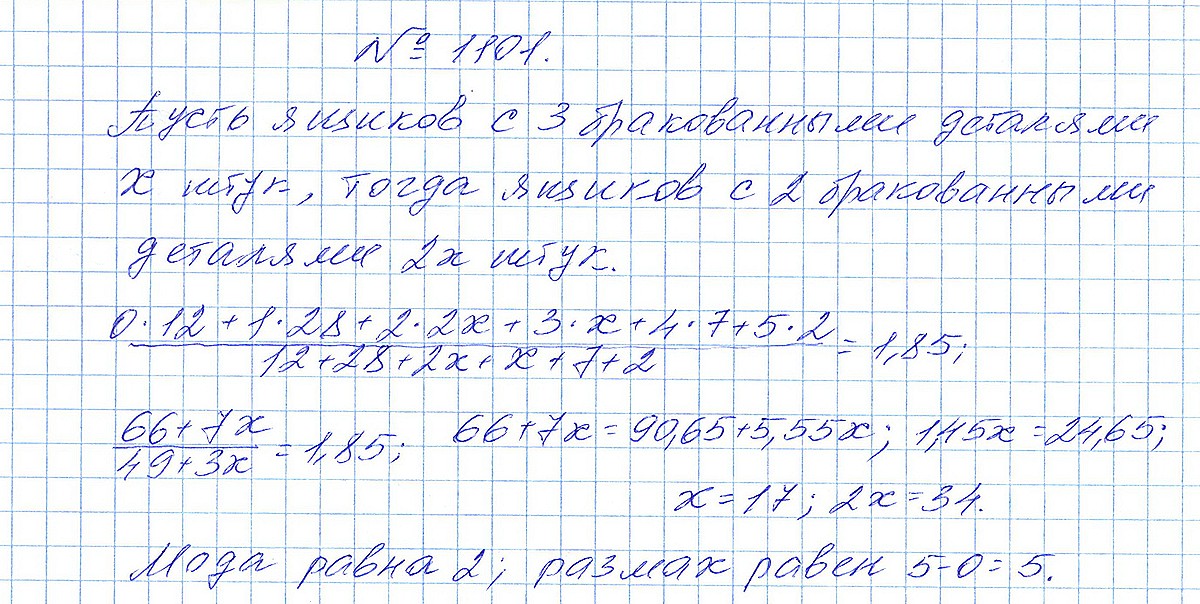 № 1101.
Пусть ящиков с 3 бракованными деталями
x штук, тогда ящиков с 2 бракованными
деталями 2x штук.
0·12+1·28+2·2x+3·x+4·7+5·2
12+28+2x+x+7+2 = 1,85;
66+7x
49+3x = 1,85; 66+7x=90,65+5,55x; 1,45x=24,65;
x=17; 2x=34.
Мода равна 2; размах равен 5-0=5.